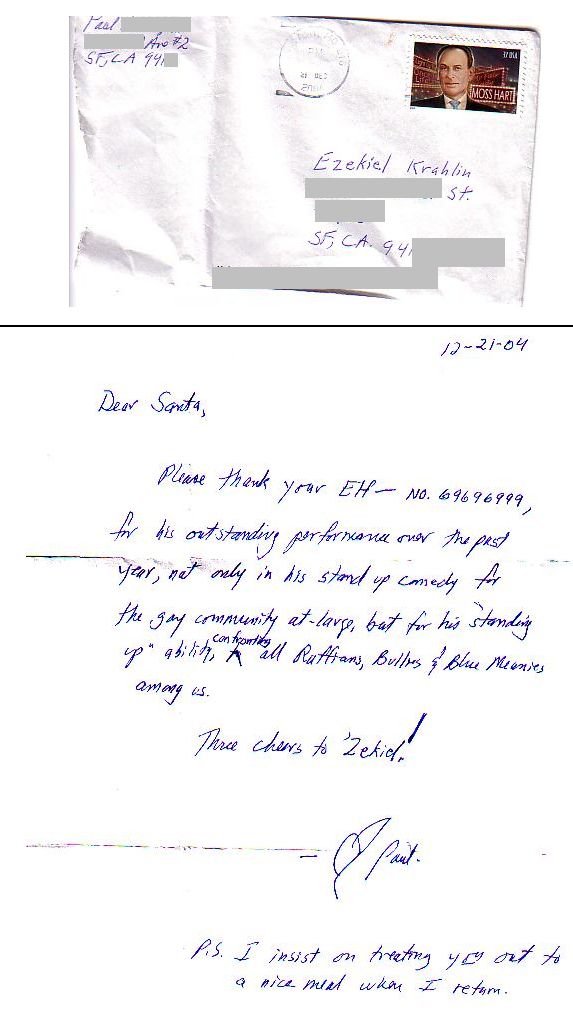 Paul
Ave #2
SF, CA 941
PM
21 DEC
2004
37 USA
MOSS HART
Ezekiel Krahlin
St.
SF, CA. 941
12-21-04
Dear Santa,
Please thank your Elf — NO. 69696999,
for his outstanding performance over the past
year, not only in his stand up comedy for
the gay community at-large, but for his "standing
up" ability, confronting all Ruffians, Bullies & Blue Meanies
among us.
Three cheers to 'Zekiel!
— Paul.
P.S. I insist on treating you out to
a nice meal when I return.